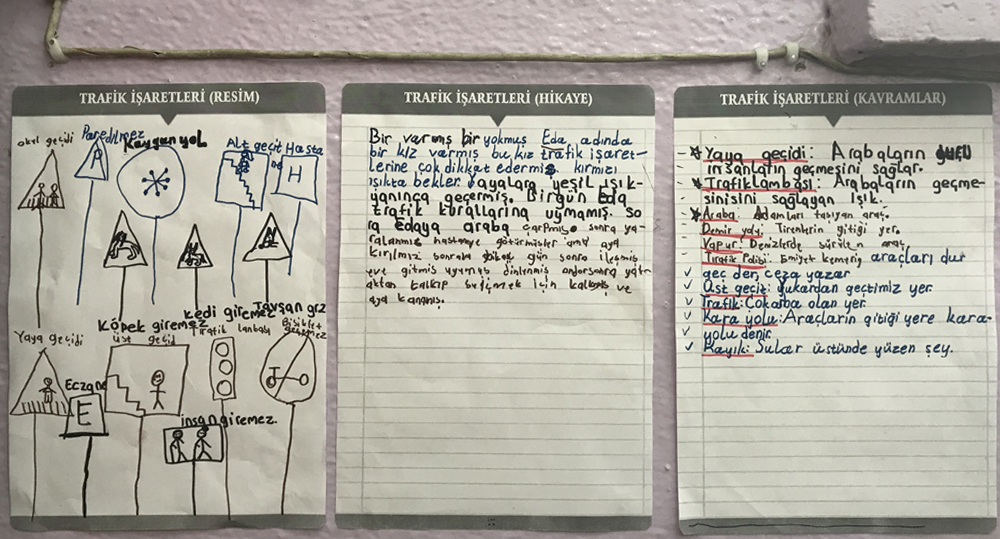 TRAFİK İŞARETLERİ (RESİM)
okul geçidi
Paredilmez
Kaygan yol
Alt geçit
Hasta
H
Köpek giremez
kedi giremez
Tavşan
Yaya geçidi
üst geçid
Trafik lanbası
Bisiklet giremez
Eczane
E
insan giremez.
TRAFİK İŞARETLERİ (HİKAYE)
Bir varmış bir yokmuş Eda adında
bir kız varmış bu kız trafik işaret-
lerine çok dikkat edermiş kırmızı
ışıkta bekler. Yayalara yeşil ışık-
yanınca geçermiş. Birgün Eda
trafik kurallarına uymamış. So
ra edaya araba çarpmış. sonra ya-
ralanmış hastneye götürmüşler ama aya
kırılmız sonraki gün sonra ileşmiş
eve gitmiş uyumuş dinlenmiş yat-
aktan kalkıp için ve
TRAFİK İŞARETLERİ (KAVRAMLAR)
Yaya geçidi: Arabaların
insanların geçmesini sağlar.
Trafiklambası: Arabaların geçme-
sinisini sağlayan ışık.
Araba: Adamları taşıyan araç.
Demir yolu: Tirenlerin gitiği yer.
Vapur: Denizlerde sürülen araç
Tirafik Polisi: Emiyet kemeriç araçları dur
geç der, ceza yazar
Üst geçit: yukardan geçtimiz yer
Trafik: Çokarba olan yer.
Kara yolu: Araçların gitiği yere kara-
yolu denir.
Kayık: Sular üstünde yüzen şey.